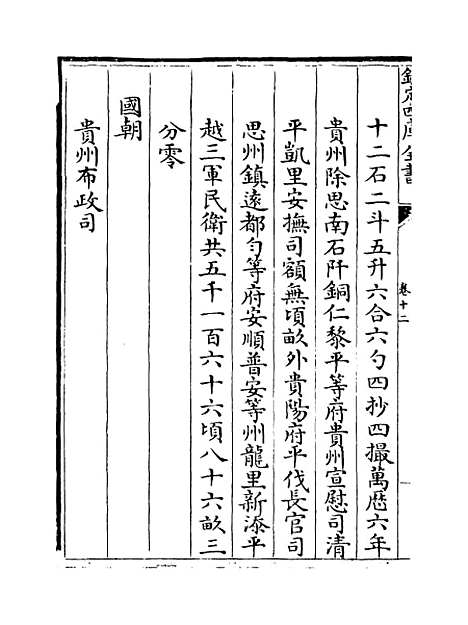 欽定四庫全書
卷十二
十二石二斗五升六合六勺四抄四撮萬歷六年
貴州除思南石阡銅仁黎平等府貴州宣慰司清
平凱里安撫司額無頃畝外貴陽府平伐長官司
思州鎮遠都勻等府安順普安等州龍里新添平
越三軍民衛共五千一百六十六頃八十六畝三
分零
國朝
貴州布政司